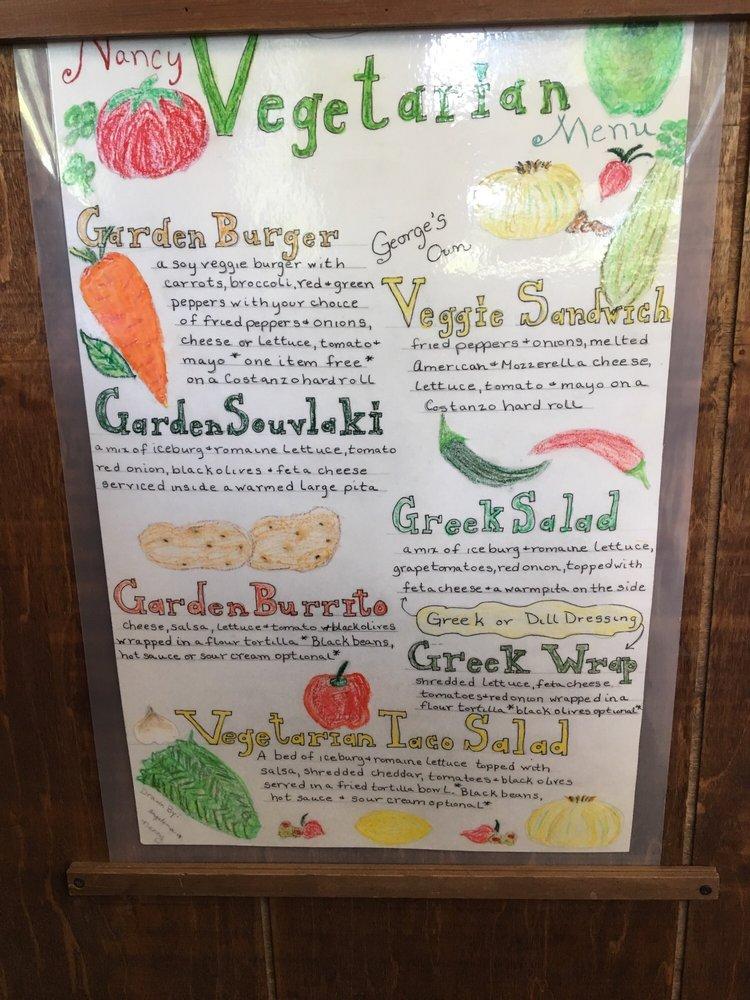 Nancy
Vegetarian
Menu
Garden Burger
a soy veggie burger with
carrots, broccoli, red + green
peppers with your choice
of fried peppers + onions,
cheese or lettuce, tomato +
mayo * one item free *
on a Costanzo hard roll
George's
Own
Veggie Sandwich
fried peppers + onions, melted
American + Mozzerella cheese,
lettuce, tomato + mayo on a
Costanzo hard roll
Garden Souvlaki
a mix of iceburg + romaine lettuce, tomato
red onion, black olives + feta cheese
serviced inside a warmed large pita
Greek Salad
a mix of iceburg + romaine lettuce,
grape tomatoes, red onion, topped with
feta cheese + a warm pita on the side
Greek or Dill Dressing
Garden Burrito
cheese, salsa, lettuce + tomato + black olives
wrapped in a flour tortilla * Black beans,
hot sauce or sour cream optional *
Greek Wrap
shredded lettuce, feta cheese
tomatoes + red onion wrapped in a
flour tortilla * black olives optional *
Vegetarian Taco Salad
A bed of iceburg + romaine lettuce topped with
salsa, shredded cheddar, tomatoes + black olives
served in a fried tortilla bowl. * Black beans,
hot sauce + sour cream optional *
Drawn By: